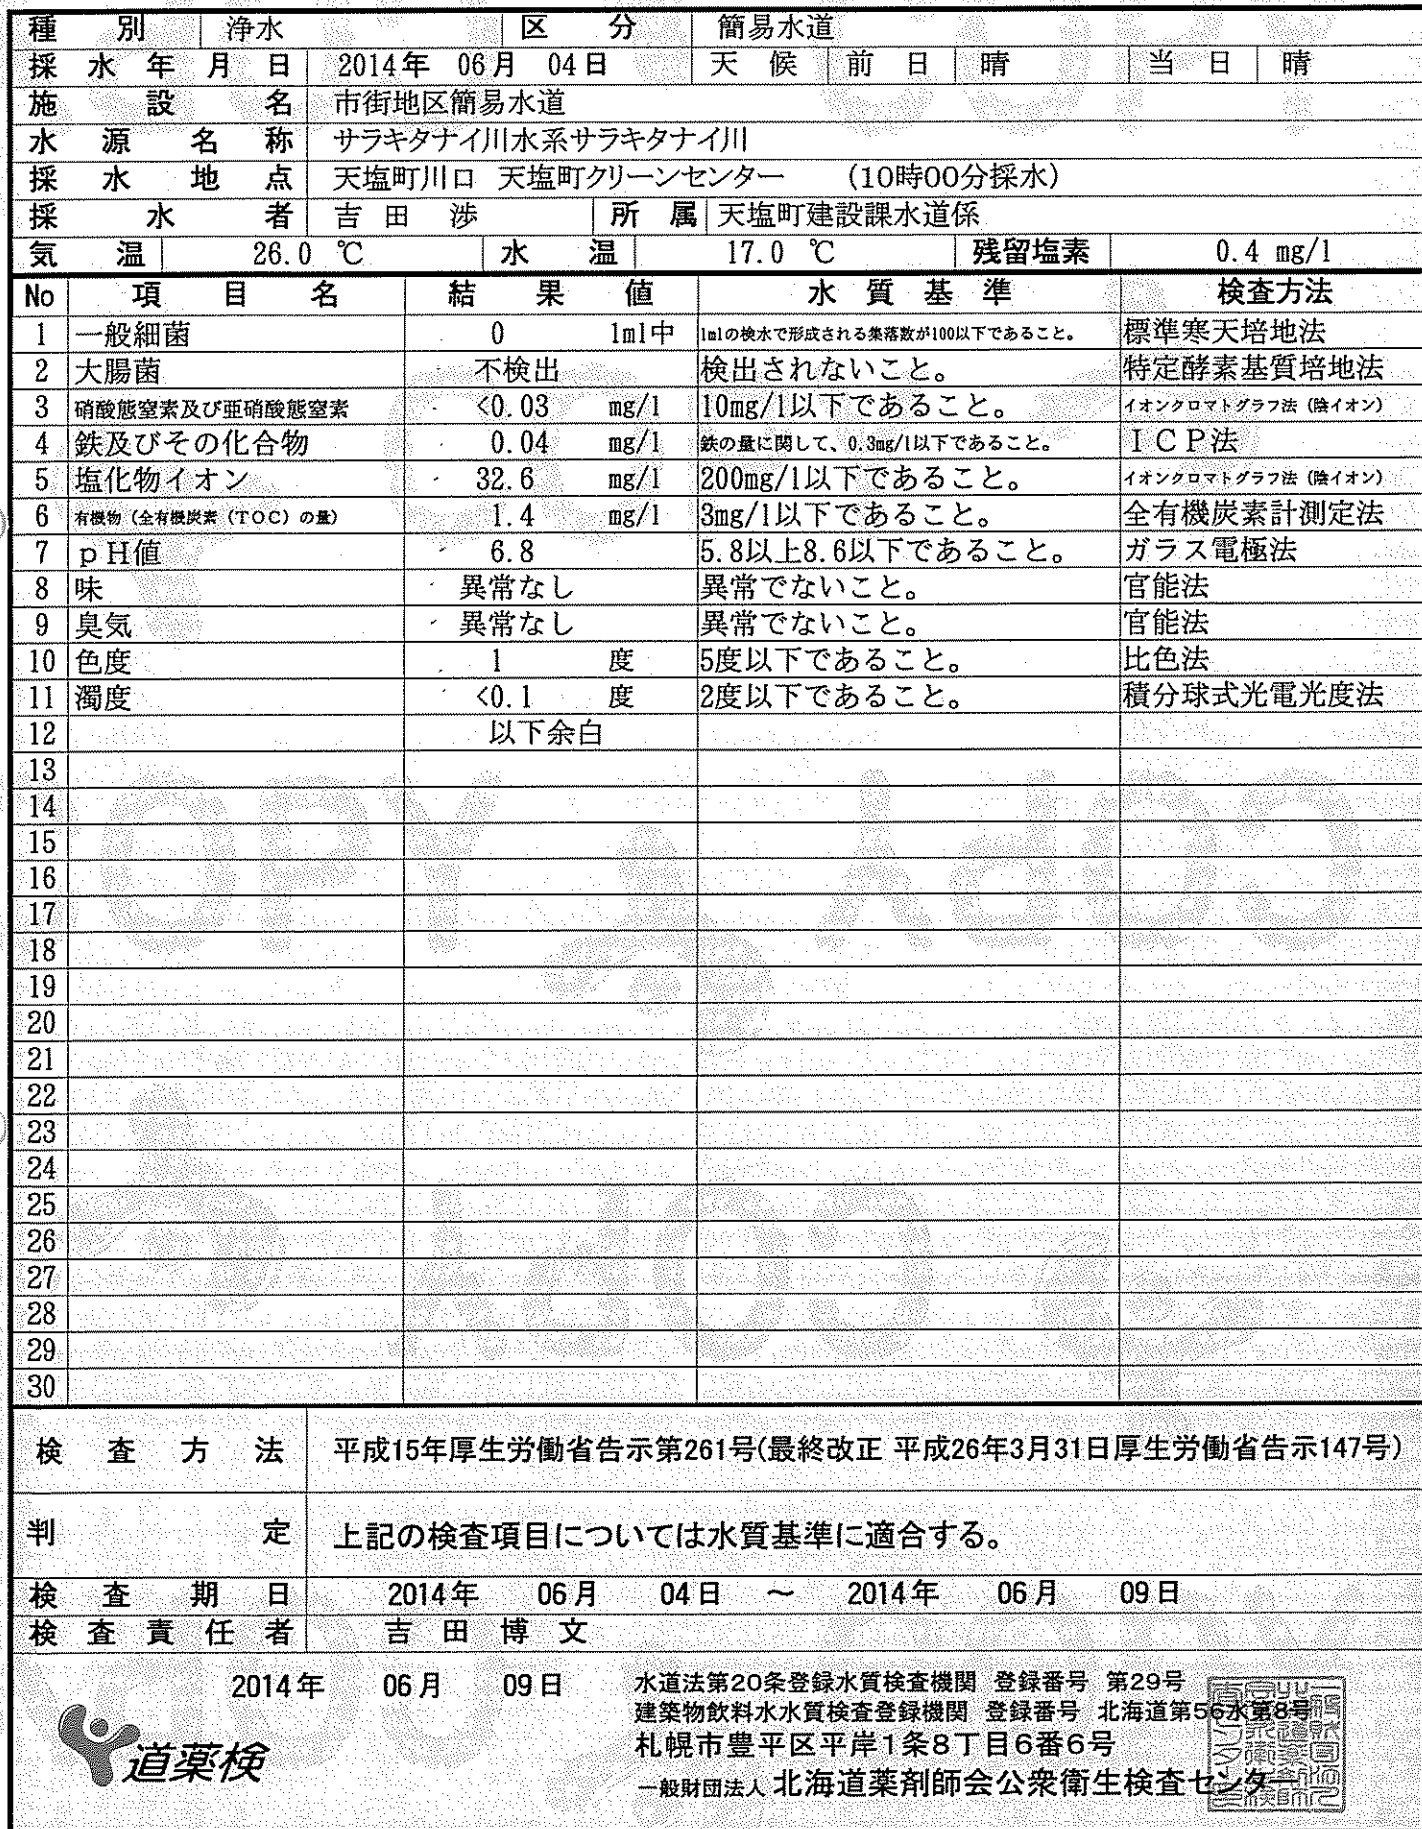 種別 浄水 区分 簡易水道
採水年月日 2014年 06月 04日 天候 前日 晴 当日 晴
施設名 市街地区簡易水道
水源名称 サラキタナイ川水系サラキタナイ川
採水地点 天塩町川口 天塩町クリーンセンター (10時00分採水)
採水者 吉田 渉 所属 天塩町建設課水道係
気温 26.0 ℃ 水温 17.0 ℃ 残留塩素 0.4 mg/l
No 項目名 結果値 水質基準 検査方法
1 一般細菌 0 1ml中 1mlの検水で形成される集落数が100以下であること。 標準寒天培地法
2 大腸菌 不検出 検出されないこと。 特定酵素基質培地法
3 硝酸態窒素及び亜硝酸態窒素 <0.03 mg/l 10mg/l以下であること。 イオンクロマトグラフ法(陰イオン)
4 鉄及びその化合物 0.04 mg/l 鉄の量に関して、0.3mg/l以下であること。 ICP法
5 塩化物イオン 32.6 mg/l 200mg/l以下であること。 イオンクロマトグラフ法(陰イオン)
6 有機物(全有機炭素(TOC)の量) 1.4 mg/l 3mg/l以下であること。 全有機炭素計測定法
7 pH値 6.8 5.8以上8.6以下であること。 ガラス電極法
8 味 異常なし 異常でないこと。 官能法
9 臭気 異常なし 異常でないこと。 官能法
10 色度 1 度 5度以下であること。 比色法
11 濁度 <0.1 度 2度以下であること。 積分球式光電光度法
12 以下余白
13
14
15
16
17
18
19
20
21
22
23
24
25
26
27
28
29
30
検査方法 平成15年厚生労働省告示第261号(最終改正 平成26年3月31日厚生労働省告示147号)
判定 上記の検査項目については水質基準に適合する。
検査期日 2014年 06月 04日 ～ 2014年 06月 09日
検査責任者 吉田博文
2014年 06月 09日
水道法第20条登録水質検査機関 登録番号 第29号
建築物飲料水水質検査登録機関 登録番号 北海道第56水第8号
札幌市豊平区平岸1条8丁目6番6号
一般財団法人 北海道薬剤師会公衆衛生検査センター
道薬検